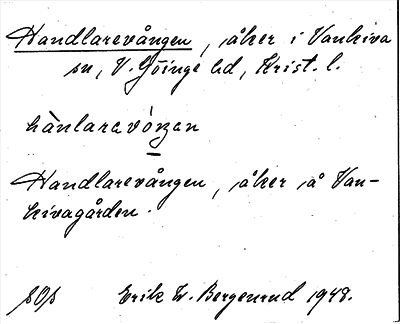 Handlarevången, åker i Vankiva
sn, V. Göinge hd, Krist. l.
hànlaravóŋan
Handlarevången, åker å Van-
kivagården.
Erik W. Bergenrud 1948.